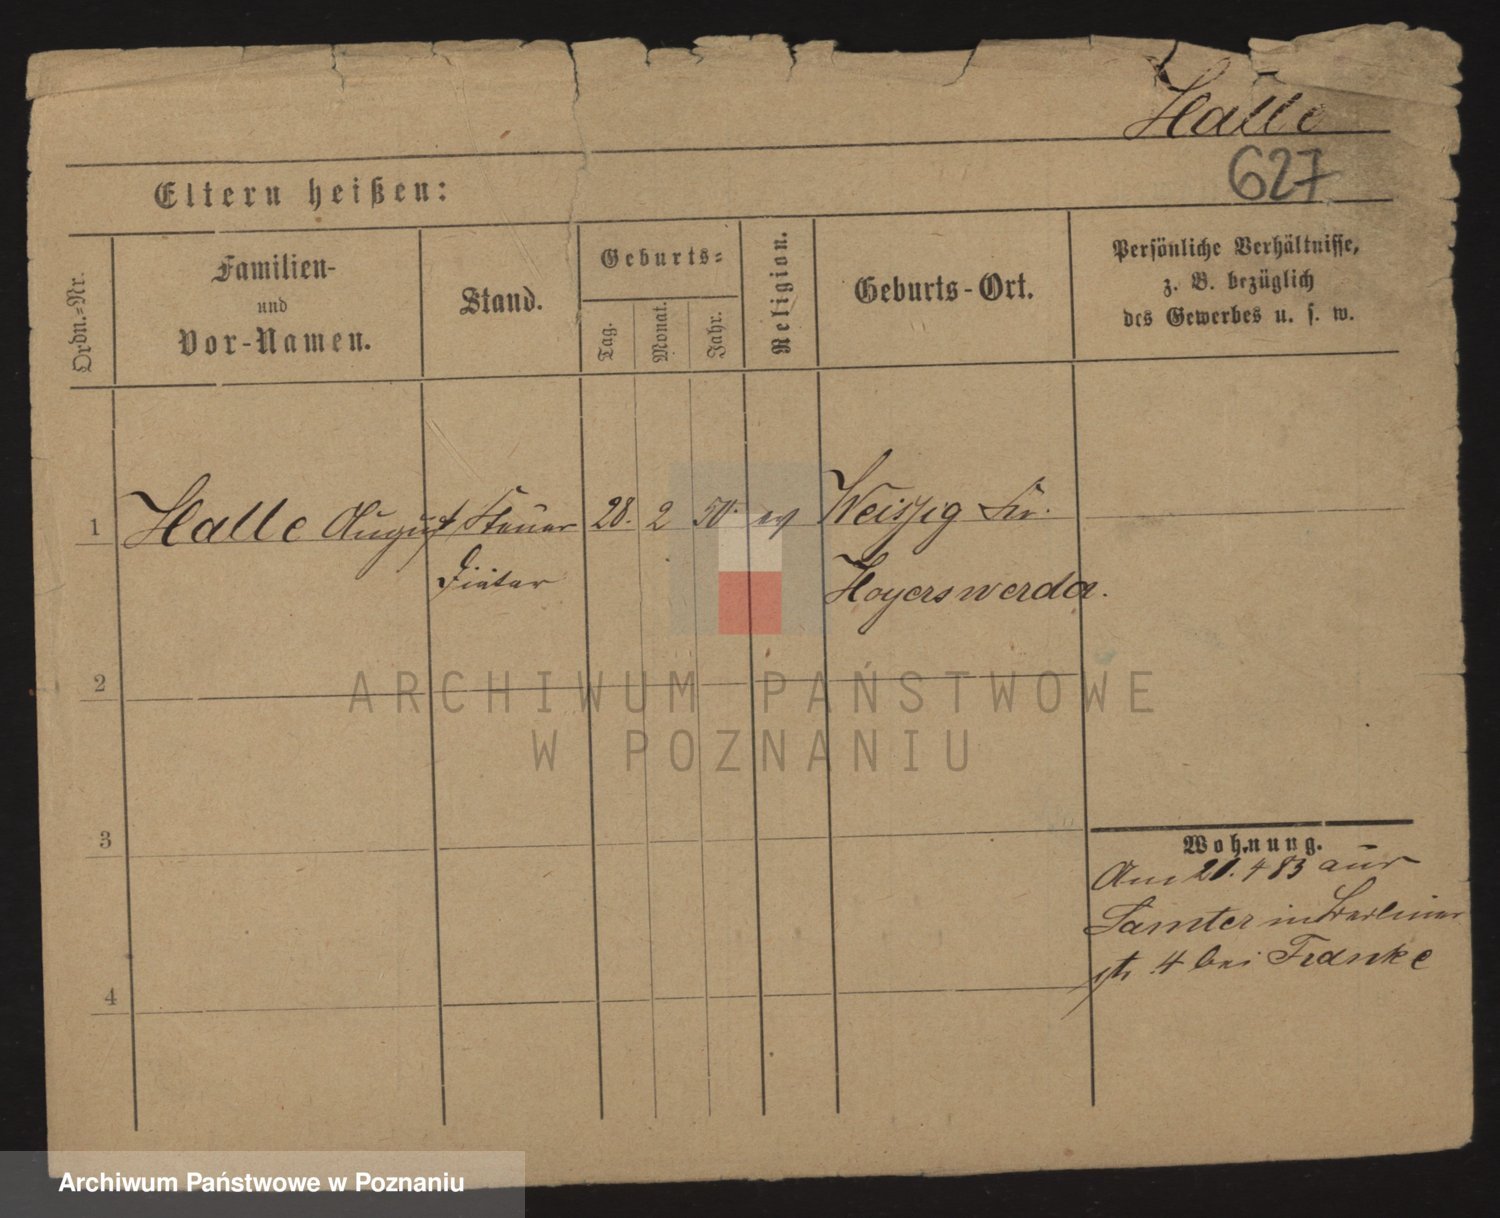 Halle
627
Eltern heißen:
Ordn.-Nr.
Familien-
und
Vor-Namen.
Stand.
Geburts-
Tag.
Monat.
Jahr.
Religion.
Geburts-Ort.
Persönliche Verhältnisse,
z. B. bezüglich
des Gewerbes u. s. w.
1 Halle August Steuer 28. 2 50. ev Weiszig Kr.
Diätar Hoyerswerda.
2
ARCHIWUM PAŃSTWOWE
W POZNANIU
3
Wohnung.
Am 21. 4 83 aus
Samter in Berliner
str. 4 bei Franke
4
Archiwum Państwowe w Poznaniu